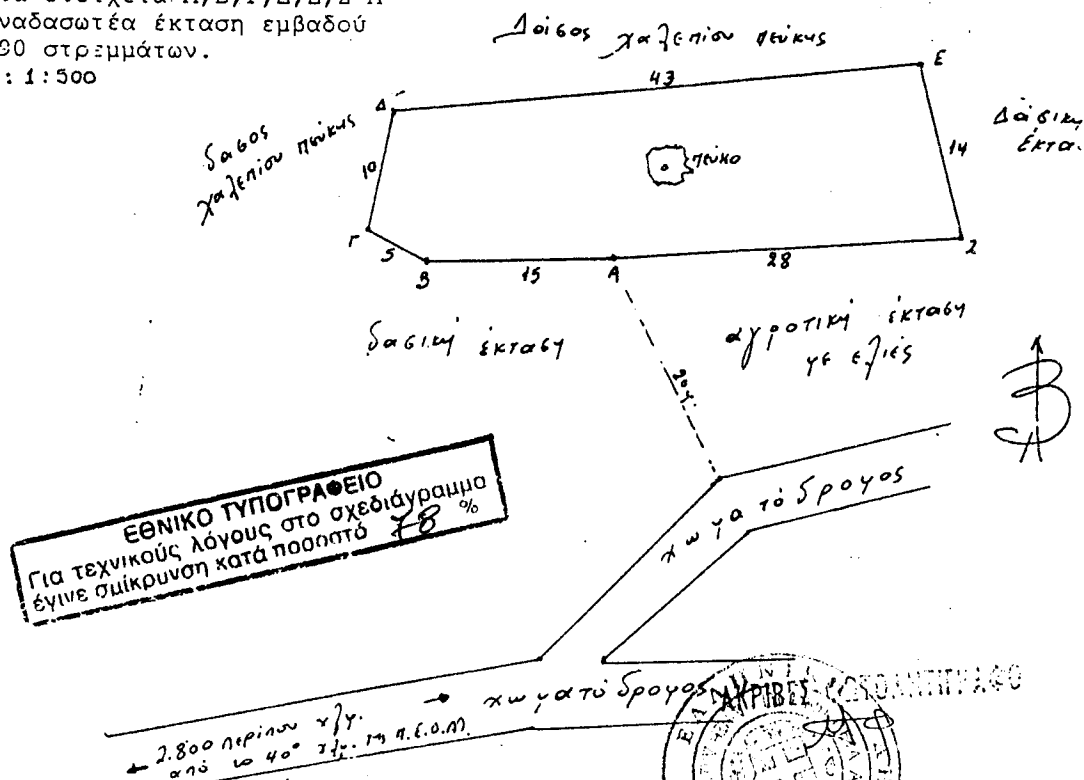 αναδασωτέα έκταση εμβαδού
στρεμμάτων.
: 1:500
Δάσος χαλεπίου πεύκης
43
Ε
Δ
δασος
χαλεπίου πεύκης
10
πεύκο
14
Δασική
έκτα.
Γ
5
Β
15
Α
28
Ζ
δασική έκταση
αγροτική έκταση
με ελιές
20μ.
Β
χωματόδρομος
ΕΘΝΙΚΟ ΤΥΠΟΓΡΑΦΕΙΟ
Για τεχνικούς λόγους στο σχεδιάγραμμα
έγινε σμίκρυνση κατά ποσοστό 78 %
→ χωματόδρομος
ΑΚΡΙΒΕΣ ΦΩΤΟΑΝΤΙΓΡΑΦΟ
← 2.800 περίπου χλμ.
από το 40° χλμ. τη Π.Ε.Ο.Π.